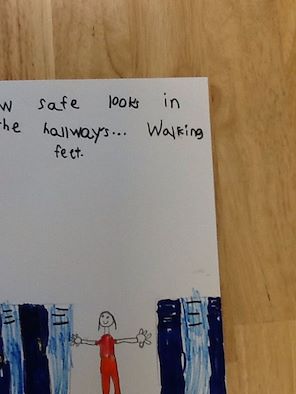 safe looks in
hallways... Walking
feet.